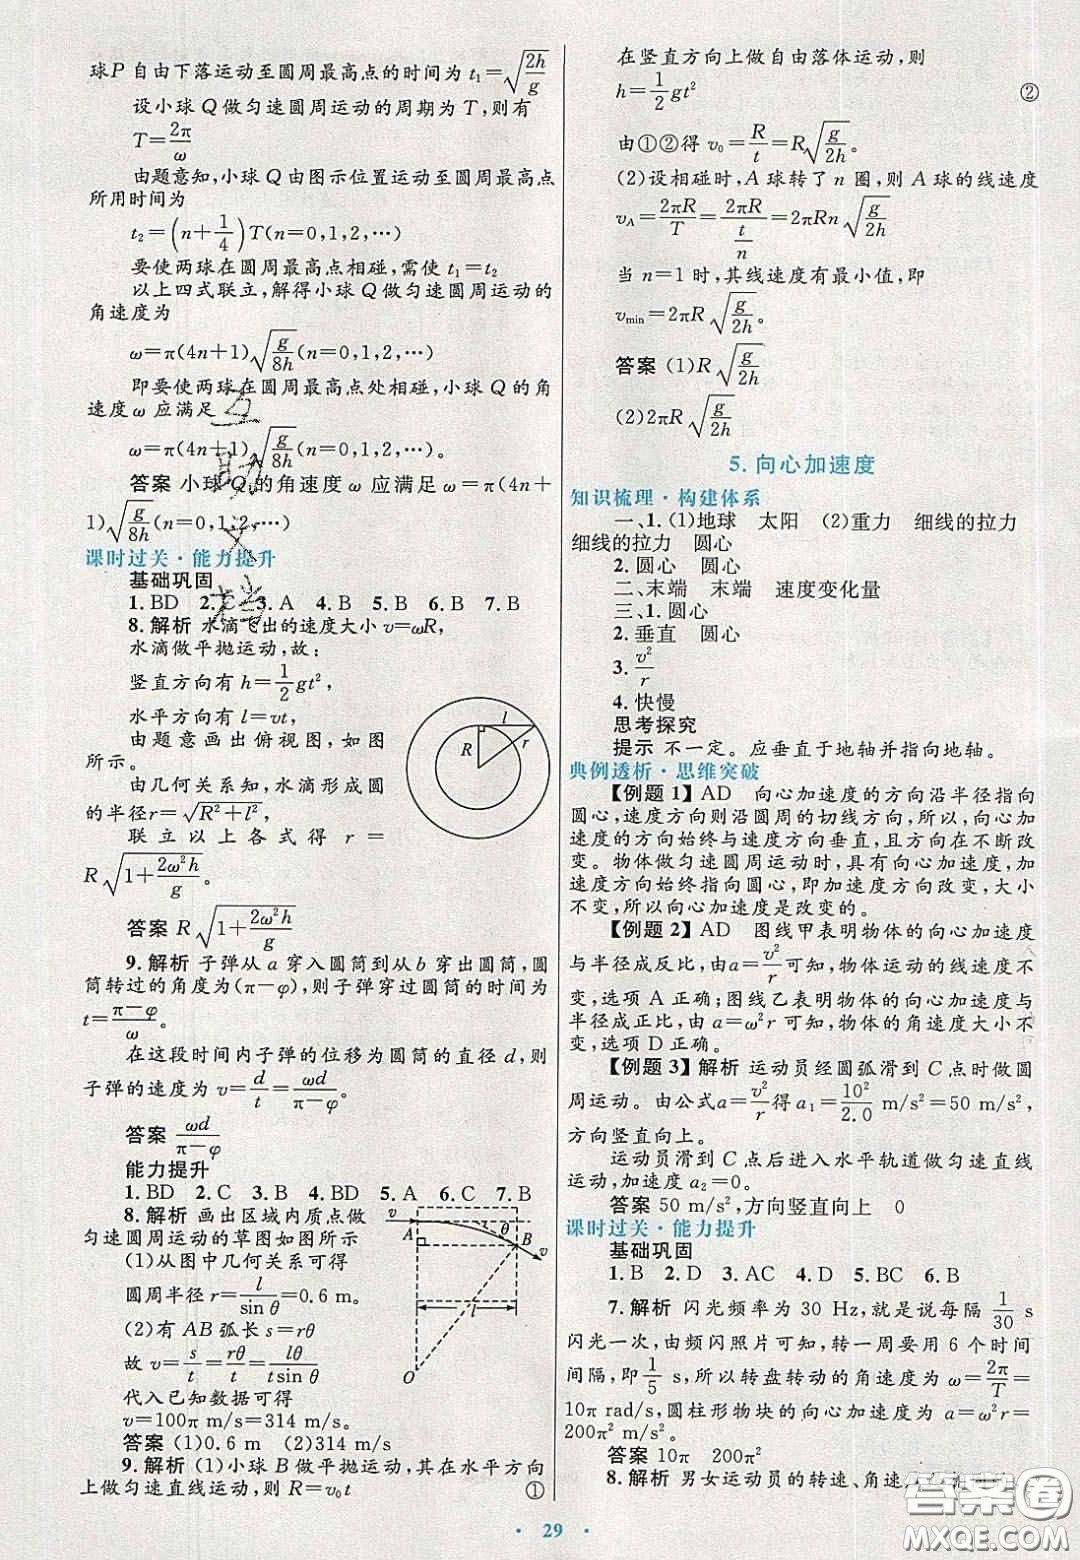 球P自由下落运动至圆周最高点的时间为 t₁=√(2h/g)
设小球Q做匀速圆周运动的周期为T,则有
T=2π/ω
由题意知,小球Q由图示位置运动至圆周最高点
所用时间为
t₂=(n+1/4)T(n=0,1,2,…)
要使两球在圆周最高点相碰,需使 t₁=t₂
以上四式联立,解得小球Q做匀速圆周运动的
角速度为
ω=π(4n+1)√(g/8h)(n=0,1,2,…)
即要使两球在圆周最高点处相碰,小球Q的角
速度ω应满足
ω=π(4n+1)√(g/8h)(n=0,1,2,…)。
答案 小球Q的角速度ω应满足ω=π(4n+
1)√(g/8h)(n=0,1,2,…)
课时过关·能力提升
基础巩固
1. BD 2. C 3. A 4. B 5. B 6. B 7. B
8. 解析 水滴飞出的速度大小v=ωR,
水滴做平抛运动,故:
竖直方向有 h=1/2gt²,
水平方向有 l=vt,
由题意画出俯视图,如图
所示。
由几何关系知,水滴形成圆
的半径r=√(R²+l²),
联立以上各式得 r=
R√(1+2ω²h/g)。
答案 R√(1+2ω²h/g)
R
l
r
9. 解析 子弹从a穿入圆筒到从b穿出圆筒,圆
筒转过的角度为(π-φ),则子弹穿过圆筒的时间为
t=(π-φ)/ω。
在这段时间内子弹的位移为圆筒的直径d,则
子弹的速度为 v=d/t=ωd/(π-φ)。
答案 ωd/(π-φ)
能力提升
1. BD 2. C 3. B 4. BD 5. A 6. C 7. B
8. 解析 画出区域内质点做
匀速圆周运动的草图如图所示
(1)从图中几何关系可得
圆周半径 r=l/sin θ=0.6 m。
(2)有AB弧长s=rθ
故 v=s/t=rθ/t=lθ/(tsin θ)
代入已知数据可得
v=100π m/s=314 m/s。
答案 (1)0.6 m (2)314 m/s
v
A
θ
B
v
l
O
9. 解析 (1)小球B做平抛运动,其在水平方向
上做匀速直线运动,则 R=v₀t ①
在竖直方向上做自由落体运动,则
h=1/2gt² ②
由①②得 v₀=R/t=R√(g/2h)。
(2)设相碰时,A球转了n圈,则A球的线速度
v_A=2πR/T=2πR/(t/n)=2πRn√(g/2h)
当 n=1 时,其线速度有最小值,即
v_min=2πR√(g/2h)。
答案 (1)R√(g/2h)
(2)2πR√(g/2h)
5. 向心加速度
知识梳理·构建体系
一、1. (1)地球 太阳 (2)重力 细线的拉力
细线的拉力 圆心
2. 圆心 圆心
二、末端 末端 速度变化量
三、1. 圆心
2. 垂直 圆心
3. v²/r
4. 快慢
思考探究
提示 不一定。应垂直于地轴并指向地轴。
典例透析·思维突破
【例题1】 AD 向心加速度的方向沿半径指向
圆心,速度方向则沿圆周的切线方向,所以,向心加
速度的方向始终与速度方向垂直,且方向在不断改
变。物体做匀速圆周运动时,具有向心加速度,加
速度方向始终指向圆心,即加速度方向改变,大小
不变,所以向心加速度是改变的。
【例题2】 AD 图线甲表明物体的向心加速度
与半径成反比,由a=v²/r可知,物体运动的线速度不
变,选项A正确;图线乙表明物体的向心加速度与
半径成正比,由 a=ω²r 可知,物体的角速度大小不
变,选项D正确。
【例题3】 解析 运动员经圆弧滑到C点时做圆
周运动。由公式a=v²/r得 a₁=10²/2.0 m/s²=50 m/s²,
方向竖直向上。
运动员滑到C点后进入水平轨道做匀速直线
运动,加速度 a₂=0。
答案 50 m/s²,方向竖直向上 0
课时过关·能力提升
基础巩固
1. B 2. D 3. AC 4. D 5. BC 6. B
7. 解析 闪光频率为30 Hz,就是说每隔 1/30 s
闪光一次,由频闪照片可知,转一周要用6个时间
间隔,即 1/5 s,所以转盘转动的角速度为 ω=2π/T=
10π rad/s,圆柱形物块的向心加速度为 a=ω²r=
200π² m/s²。
答案 10π 200π²
8. 解析 男女运动员的转速、角速
29
互
助
文
档
答案圈
MXQE.COM